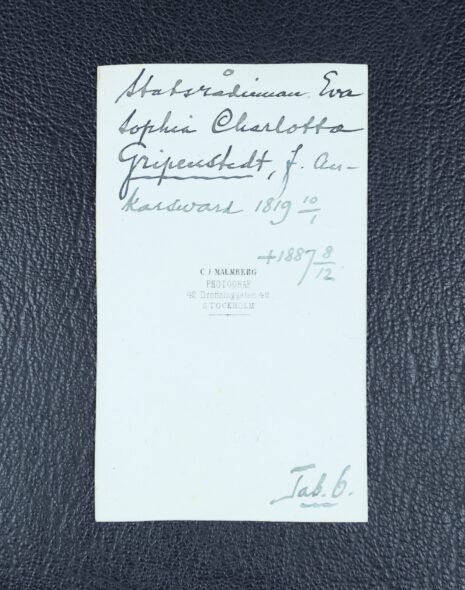 Statsrådinnan Eva
Sophia Charlotta
Gripenstedt, f. An-
karsward 1819 10/1
+1887 8/12
C J MALMBERG
PHOTOGRAF
42 Drottninggatan 42
STOCKHOLM
Tab. 6.